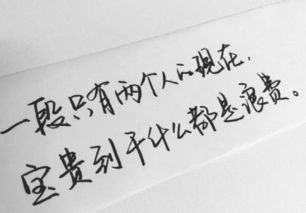 一段只有两个人的现在，
宝贵到干什么都是浪费。